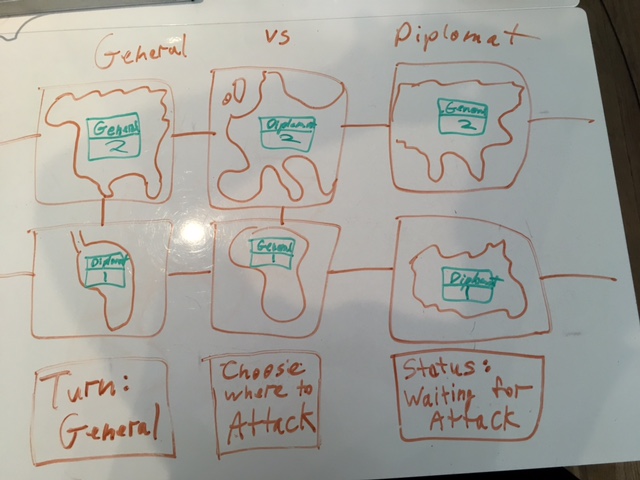 General vs Diplomat
General
2
Diplomat
2
General
2
Diplomat
1
General
1
Diplomat
1
Turn:
General
Choose
where to
Attack
Status:
Waiting for
Attack